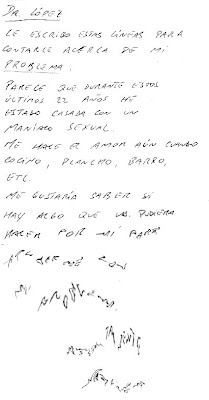 DR. LÓPEZ
LE ESCRIBO ESTAS LÍNEAS PARA
CONTARLE ACERCA DE MI
PROBLEMA.
PARECE QUE DURANTE ESTOS
ÚLTIMOS 22 AÑOS HE
ESTADO CASADA CON UN
MANÍACO SEXUAL.
ME HACE EL AMOR AÚN CUANDO
COCINO, PLANCHO, BARRO,
ETC.
ME GUSTARÍA SABER SI
HAY ALGO QUE UD. PUDIERA
HACER POR MÍ PARA